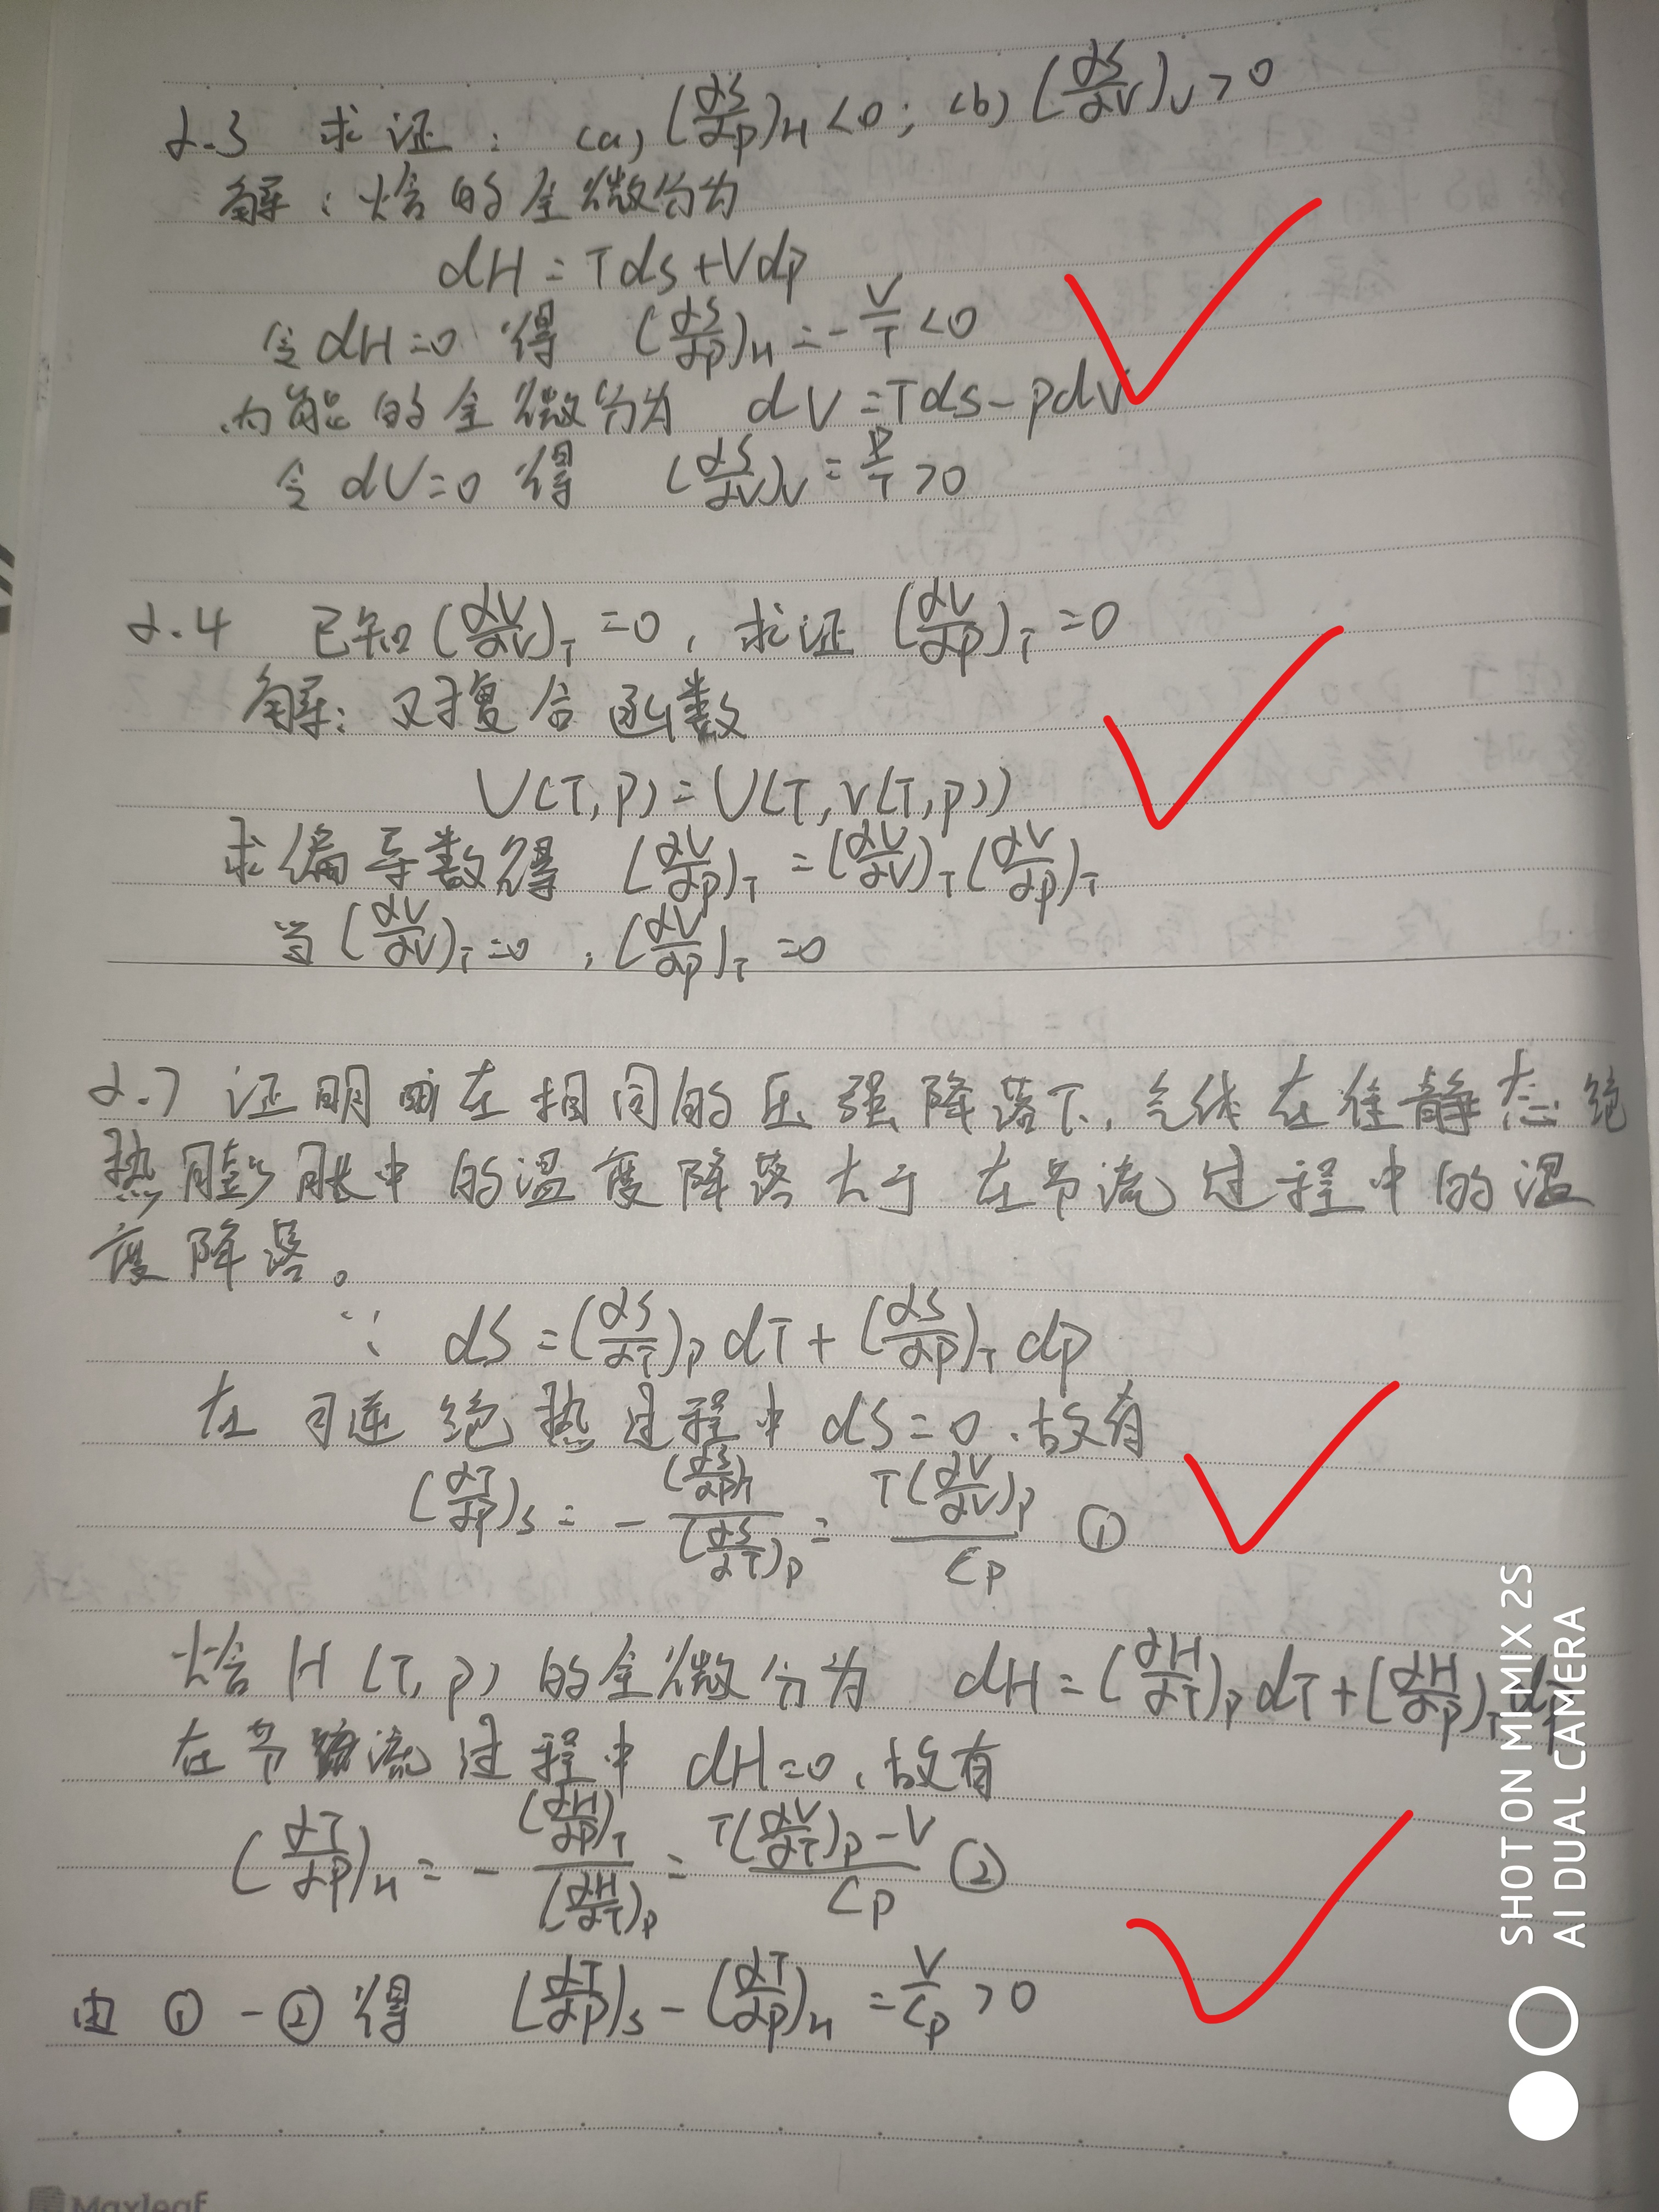 2.3 求证: (a) (∂S/∂p)_H <0; (b) (∂S/∂V)_U >0
解: 焓的全微分为
dH = Tds+Vdp
令 dH=0 得 (∂S/∂p)_H = -V/T <0
内能的全微分为 dU = Tds-pdV
令 dU=0 得 (∂S/∂V)_U = p/T >0
2.4 已知 (∂U/∂V)_T =0, 求证 (∂U/∂p)_T =0
解: 对复合函数
U(T,p)=U(T,V(T,p))
求偏导数得 (∂U/∂p)_T = (∂U/∂V)_T (∂V/∂p)_T
当 (∂U/∂V)_T =0, (∂U/∂p)_T =0
2.7 证明 在相同的压强降落下, 气体在准静态绝
热膨胀中的温度降落大于在节流过程中的温
度降落。
∵ dS = (∂S/∂T)_p dT + (∂S/∂p)_T dp
在可逆绝热过程中 dS=0, 故有
(∂T/∂p)_S = - (∂S/∂p)_T / (∂S/∂T)_p = T(∂V/∂V)_p / Cp ①
焓 H (T,p) 的全微分为 dH = (∂H/∂T)_p dT + (∂H/∂p)_T dp
在节流过程中 dH=0, 故有
(∂T/∂p)_H = - (∂H/∂p)_T / (∂H/∂T)_p = T(∂V/∂T)_p -V / Cp ②
由 ① - ② 得 (∂T/∂p)_S - (∂T/∂p)_H = V/Cp >0
SHOT ON MI MIX 2S
AI DUAL CAMERA
Maxleaf